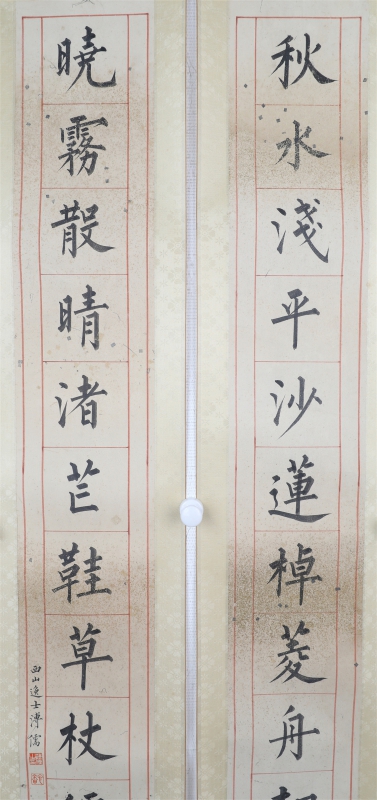 秋水淺平沙蓮棹菱舟
曉霧散晴渚芒鞵草杖
西山逸士溥儒